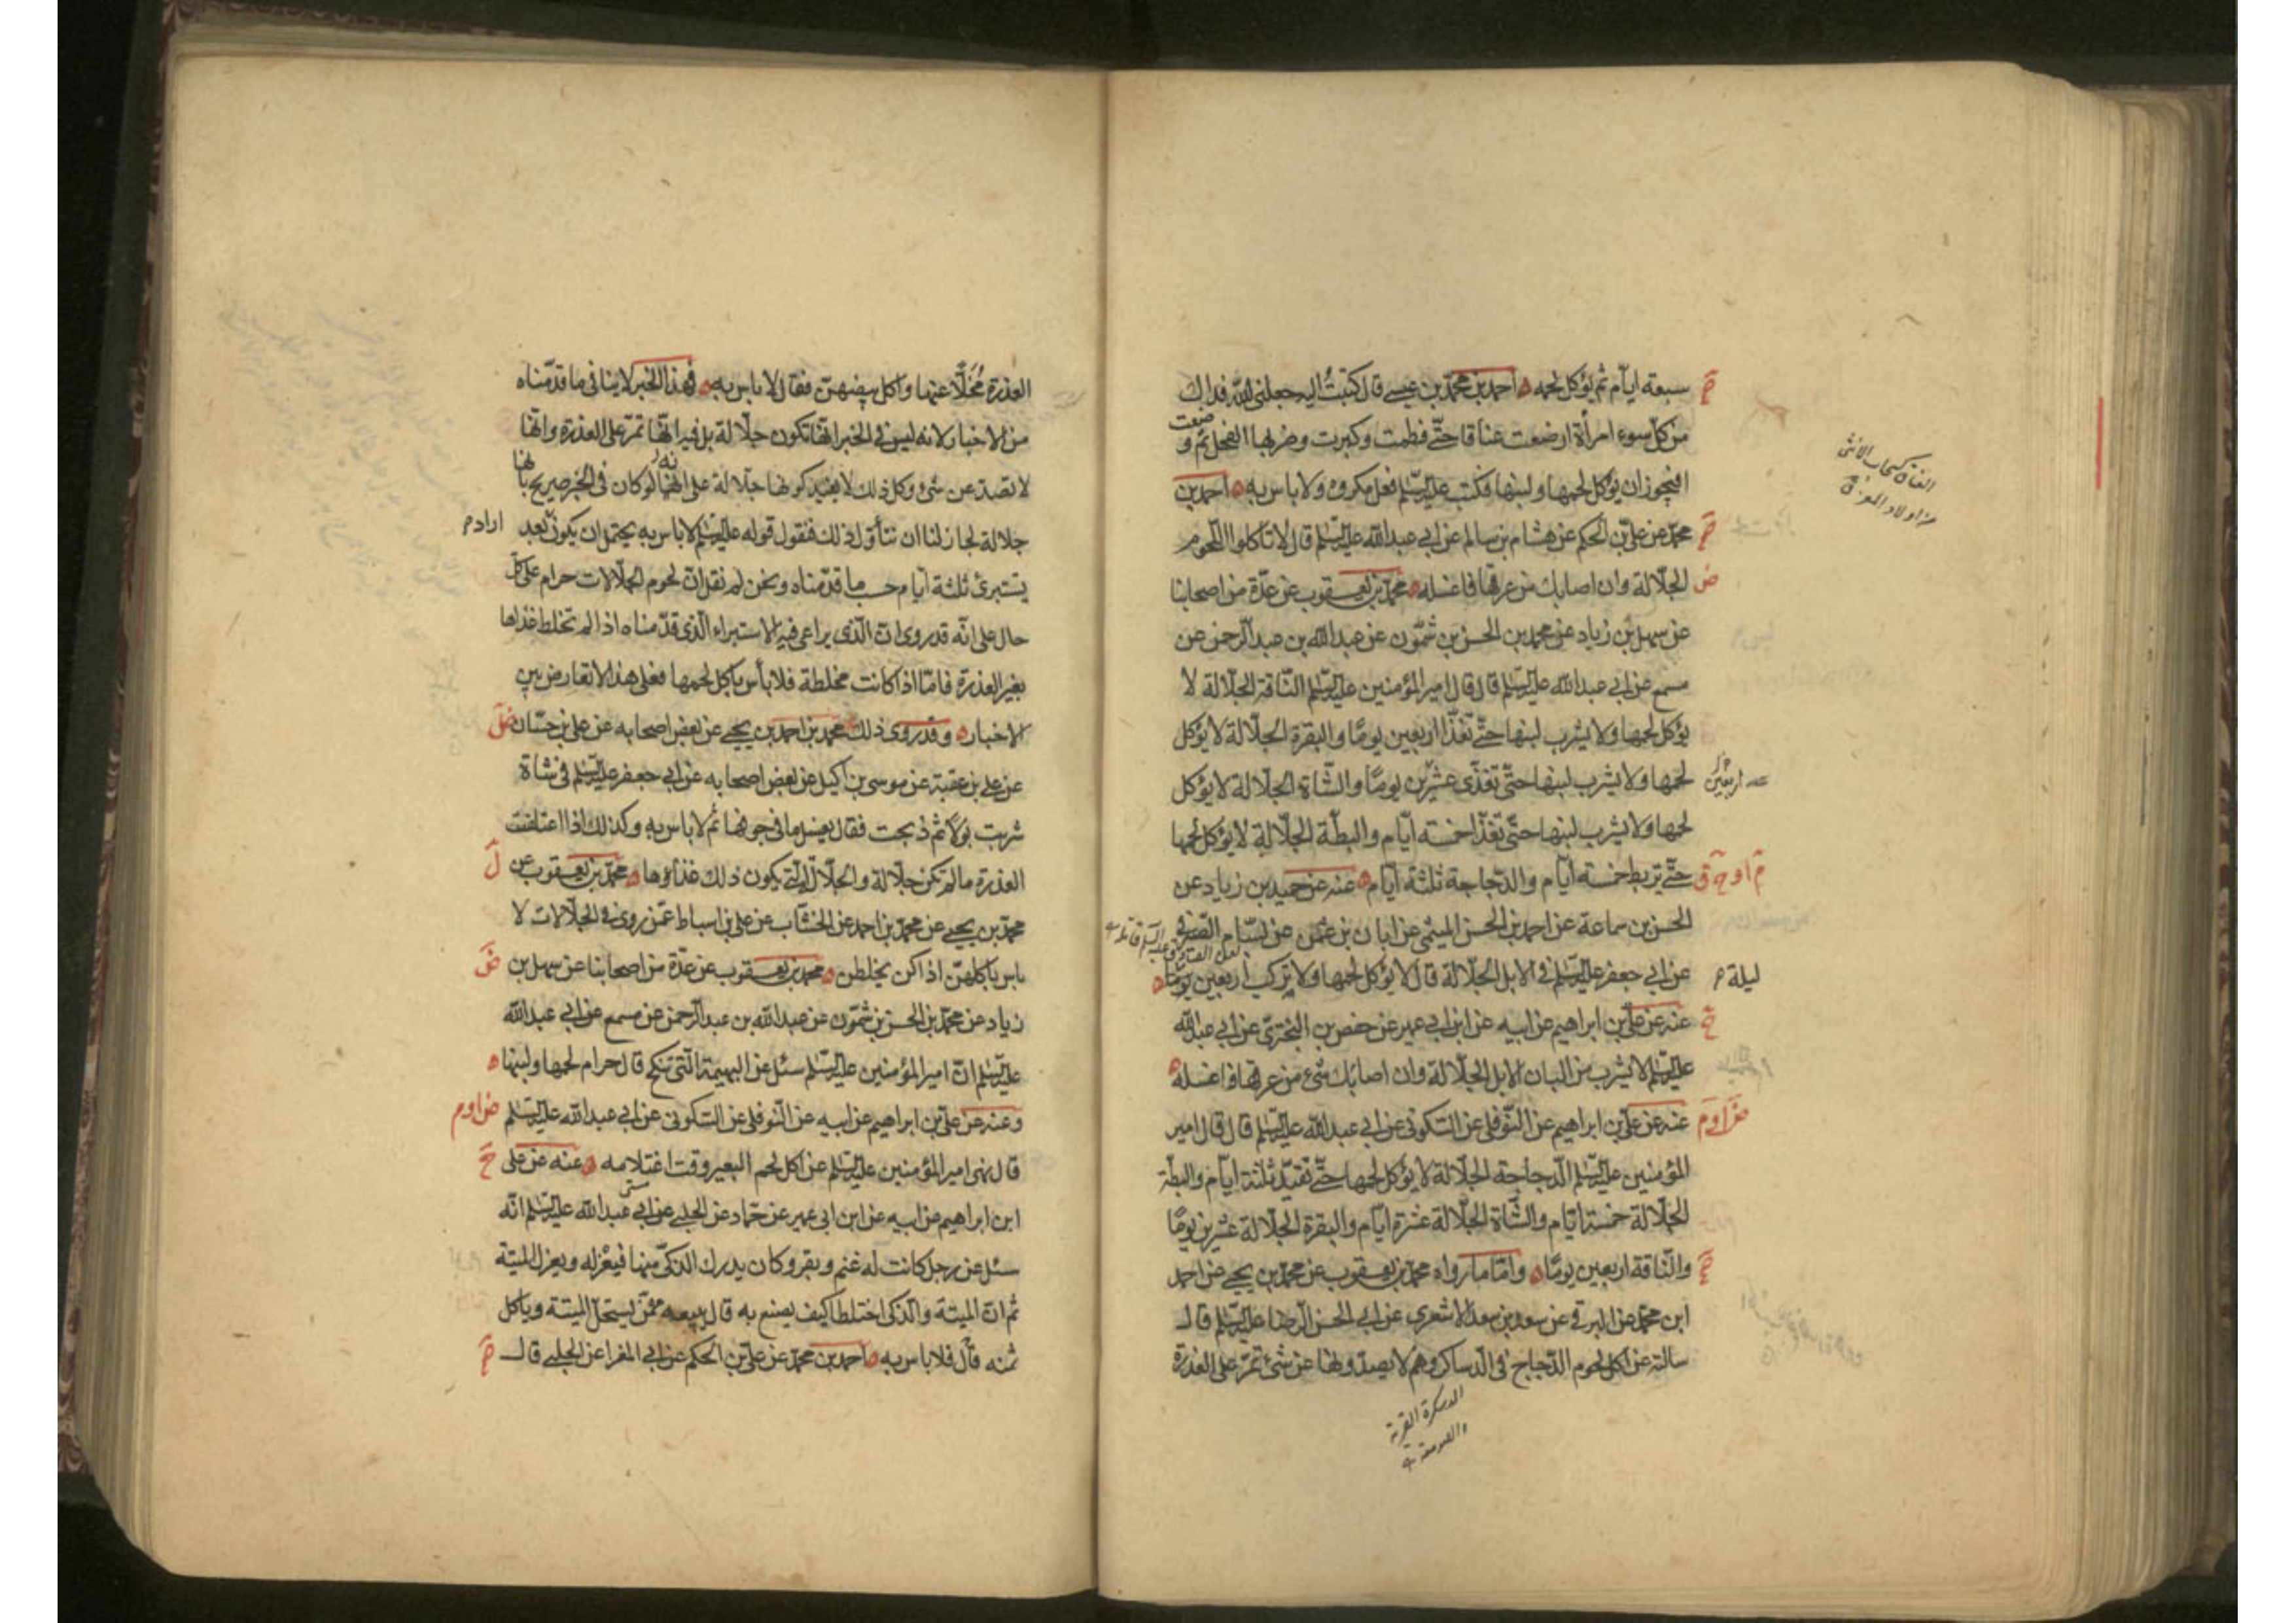 سبعة ايام ثم يؤكل لحمه احمد بن محمد بن عيسى قال كتبت اليه جعلني الله فداك
من كل سوء امرأة ارضعت عناقا حتى فطمت وكبرت وضربها الفحل ثم وضعت
افيجوز ان يؤكل لحمها ولبنها فكتب عليه السلم فعل مكروه ولا باس به احمد بن
محمد عن علي بن الحكم عن هشام بن سالم عن ابي عبد الله عليه السلم قال لا تاكلوا اللحوم
الجلالة وان اصابك من عرقها فاغسله محمد بن يعقوب عن عدة من اصحابنا
عن سهل بن زياد عن محمد بن الحسن بن شمون عن عبد الله بن عبد الرحمن عن
مسمع عن ابي عبد الله عليه السلم قال قال امير المؤمنين عليه السلم الناقة الجلالة لا
يؤكل لحمها ولا يشرب لبنها حتى تغذا اربعين يوما والبقرة الجلالة لا يؤكل
لحمها ولا يشرب لبنها حتى تغذى عشرين يوما والشاة الجلالة لا يؤكل
لحمها ولا يشرب لبنها حتى تغذا خمسة ايام والبطة الجلالة لا يؤكل لحمها
حتى تربط خمسة ايام والدجاجة ثلثة ايام عنه عن حميد بن زياد عن
الحسن بن سماعة عن احمد بن الحسن الميثمي عن ابان بن عثمن عن بسام الصيرفي
عن ابي جعفر عليه السلم في الابل الجلالة قال لا يؤكل لحمها ولا تركب اربعين يوما
عنه عن علي بن ابراهيم عن ابيه عن ابن ابي عمير عن حفص بن البختري عن ابي عبد الله
عليه السلم لا يشرب من البان الابل الجلالة وان اصابك شئ من عرقها فاغسله
عنه عن علي بن ابراهيم عن النوفلي عن السكوني عن ابي عبد الله عليه السلم قال قال امير
المؤمنين عليه السلم الدجاجة الجلالة لا يؤكل لحمها حتى تقيد ثلثة ايام والبطة
الجلالة خمسة ايام والشاة الجلالة عشرة ايام والبقرة الجلالة عشرين يوما
والناقة اربعين يوما واما ما رواه محمد بن يعقوب عن محمد بن يحيى عن احمد
ابن محمد عن البرقي عن سعد بن سعد الاشعري عن ابي الحسن الرضا عليه السلم قال
سالته عن اكل لحوم الدجاج في الدساكر وهم لا يصدونها عن شئ تمر على العذرة
العناق كسحاب الانثى
من اولاد المعز ق
ليلة م
الدسكرة القرية
والصومعة
العذرة مخلا عنها واكل بيضهن فقال لا باس به فهذا الخبر لا ينافي ما قدمناه
من الاخبار لانه ليس في الخبر انها تكون جلالة بل فيه انها تمر على العذرة وانها
لا تصد عن شئ وكل ذلك لا يفيد كونها جلالة على انه لو كان في الخبر صريح بانها
جلالة لجاز لنا ان نتأول ذلك فنقول قوله عليه السلم لا باس به يحتمل ان يكون بعد
يستبرئ ثلثة ايام حسب ما قدمناه ونحن لم نقل ان لحوم الجلالات حرام على كل
حال على انه قد روى ان الذي يراعى فيه الاستبراء الذي قدمناه اذا لم تخلط غذاها
بغير العذرة فاما اذا كانت مخلطة فلا بأس باكل لحمها فعلى هذا لا تعارض بين
الاخبار وقد روى ذلك محمد بن احمد بن يحيى عن بعض اصحابه عن علي بن حسان
عن علي بن عقبة عن موسى بن اكيل عن بعض اصحابه عن ابي جعفر عليه السلم في شاة
شربت بولا ثم ذبحت فقال يغسل ما في جوفها ثم لا باس به وكذلك اذا اعتلفت
العذرة ما لم تكن جلالة والجلالة التي يكون ذلك غذاؤها محمد بن يعقوب عن
محمد بن يحيى عن محمد بن احمد عن الخشاب عن علي بن اسباط عمن روى في الجلالات لا
باس باكلهن اذا كن يخلطن محمد بن يعقوب عن عدة من اصحابنا عن سهل بن
زياد عن محمد بن الحسن بن شمون عن عبد الله بن عبد الرحمن عن مسمع عن ابي عبد الله
عليه السلم ان امير المؤمنين عليه السلم سئل عن البهيمة التي تنكح قال حرام لحمها ولبنها
وعنه عن علي بن ابراهيم عن ابيه عن النوفلي عن السكوني عن ابي عبد الله عليه السلم
قال نهى امير المؤمنين عليه السلم عن اكل لحم البعير وقت اغتلامه عنه عن علي
ابن ابراهيم عن ابيه عن ابن ابي عمير عن حماد عن الحلبي عن ابي عبد الله عليه السلم انه
سئل عن رجل كانت له غنم وبقر وكان يدرك الذكي منها فيعزله ويعزل الميتة
ثم ان الميتة والذكي اختلطا كيف يصنع به قال يبيعه ممن يستحل الميتة وياكل
ثمنه قال فلا باس به احمد بن محمد عن علي بن الحكم عن ابي المغرا عن الحلبي قال